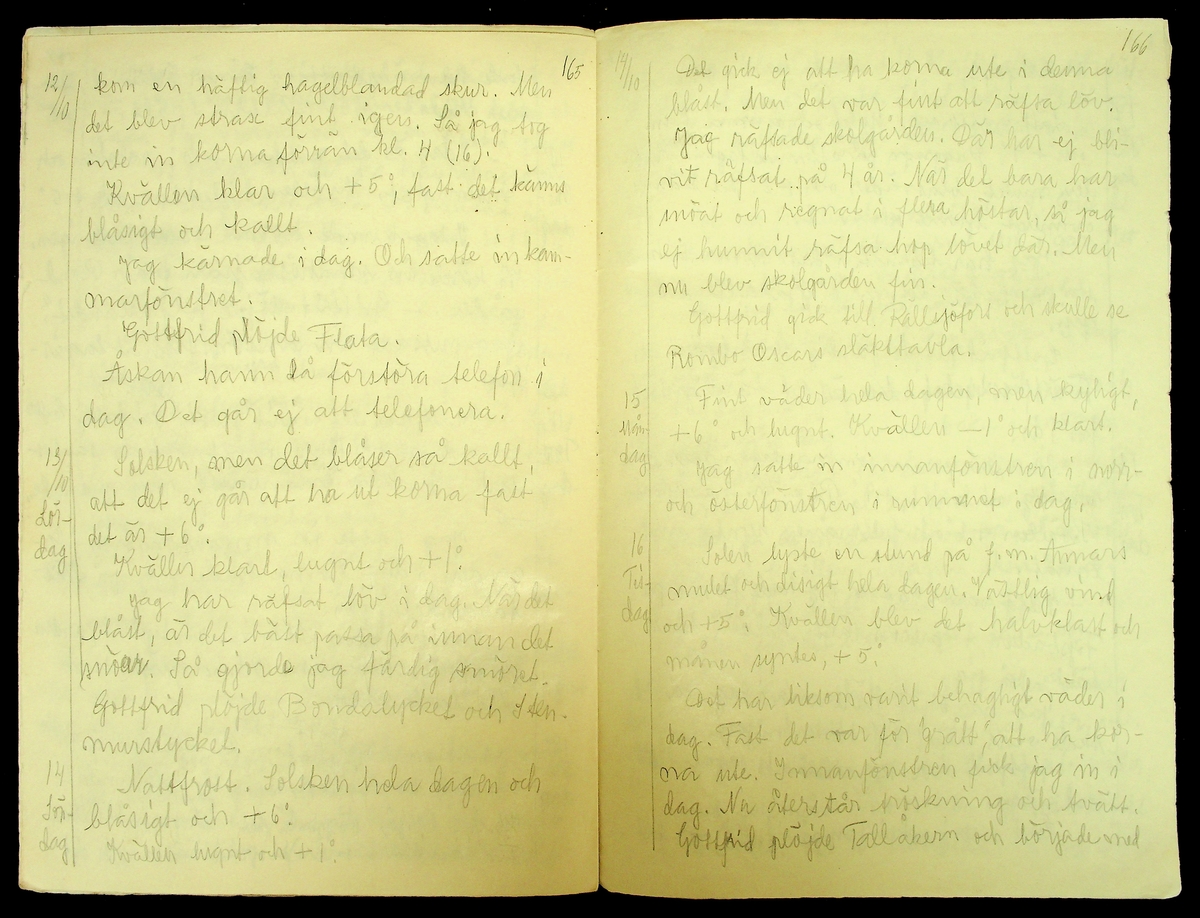 165
12/10 kom en häftig hagelblandad skur. Men
det blev strax fint igen. Så jag tog
inte in korna förrän kl. 4 (16).
Kvällen klar och +5°, fast det känns
blåsigt och kallt.
Jag kärnade i dag. Och satte in kam-
marfönstret.
Gottfrid plöjde Flata.
Åskan hann då förstöra telefon i
dag. Det går ej att telefonera.
13/10 Lör-dag Solsken, men det blåser så kallt,
att det ej går att ha ut korna fast
det är +6°.
Kvällen klart, lugnt och +1°.
Jag har räfsat löv i dag. När det
blåst, är det bäst passa på innan det
snöar. Så gjorde jag färdig smöret.
Gottfrid plöjde Bondalycket och Sten-
murstycket.
14 Sön-dag Nattfrost. Solsken hela dagen och
blåsigt och +6°.
Kvällen lugnt och +1°.
166
14/10 Det gick ej att ha korna ute i denna
blåst. Men det var fint att räfsa löv.
Jag räfsade skolgården. Där har ej bli-
vit räfsat på 4 år. När det bara har
snöat och regnat i flera höstar, så jag
ej hunnit räfsa hop lövet där. Men
nu blev skolgården fin.
Gottfrid gick till Rällsjöfors och skulle se
Rombo Oscars släkttavla.
15 Mån-dag Fint väder hela dagen, men kyligt,
+6° och lugnt. Kvällen -1° och klart.
Jag satte in innanfönstren i norr-
och österfönstren i rummet i dag.
16 Tis-dag Solen lyste en stund på f.m. Annars
mulet och disigt hela dagen. Västlig vind
och +5°. Kvällen blev det halvklart och
månen syntes, +5°.
Det har liksom varit behagligt väder i
dag. Fast det var för "grått", att ha kor-
na ute. Innanfönstren fick jag in i
dag. Nu återstår tröskning och tvätt.
Gottfrid plöjde Tallåkern och började med